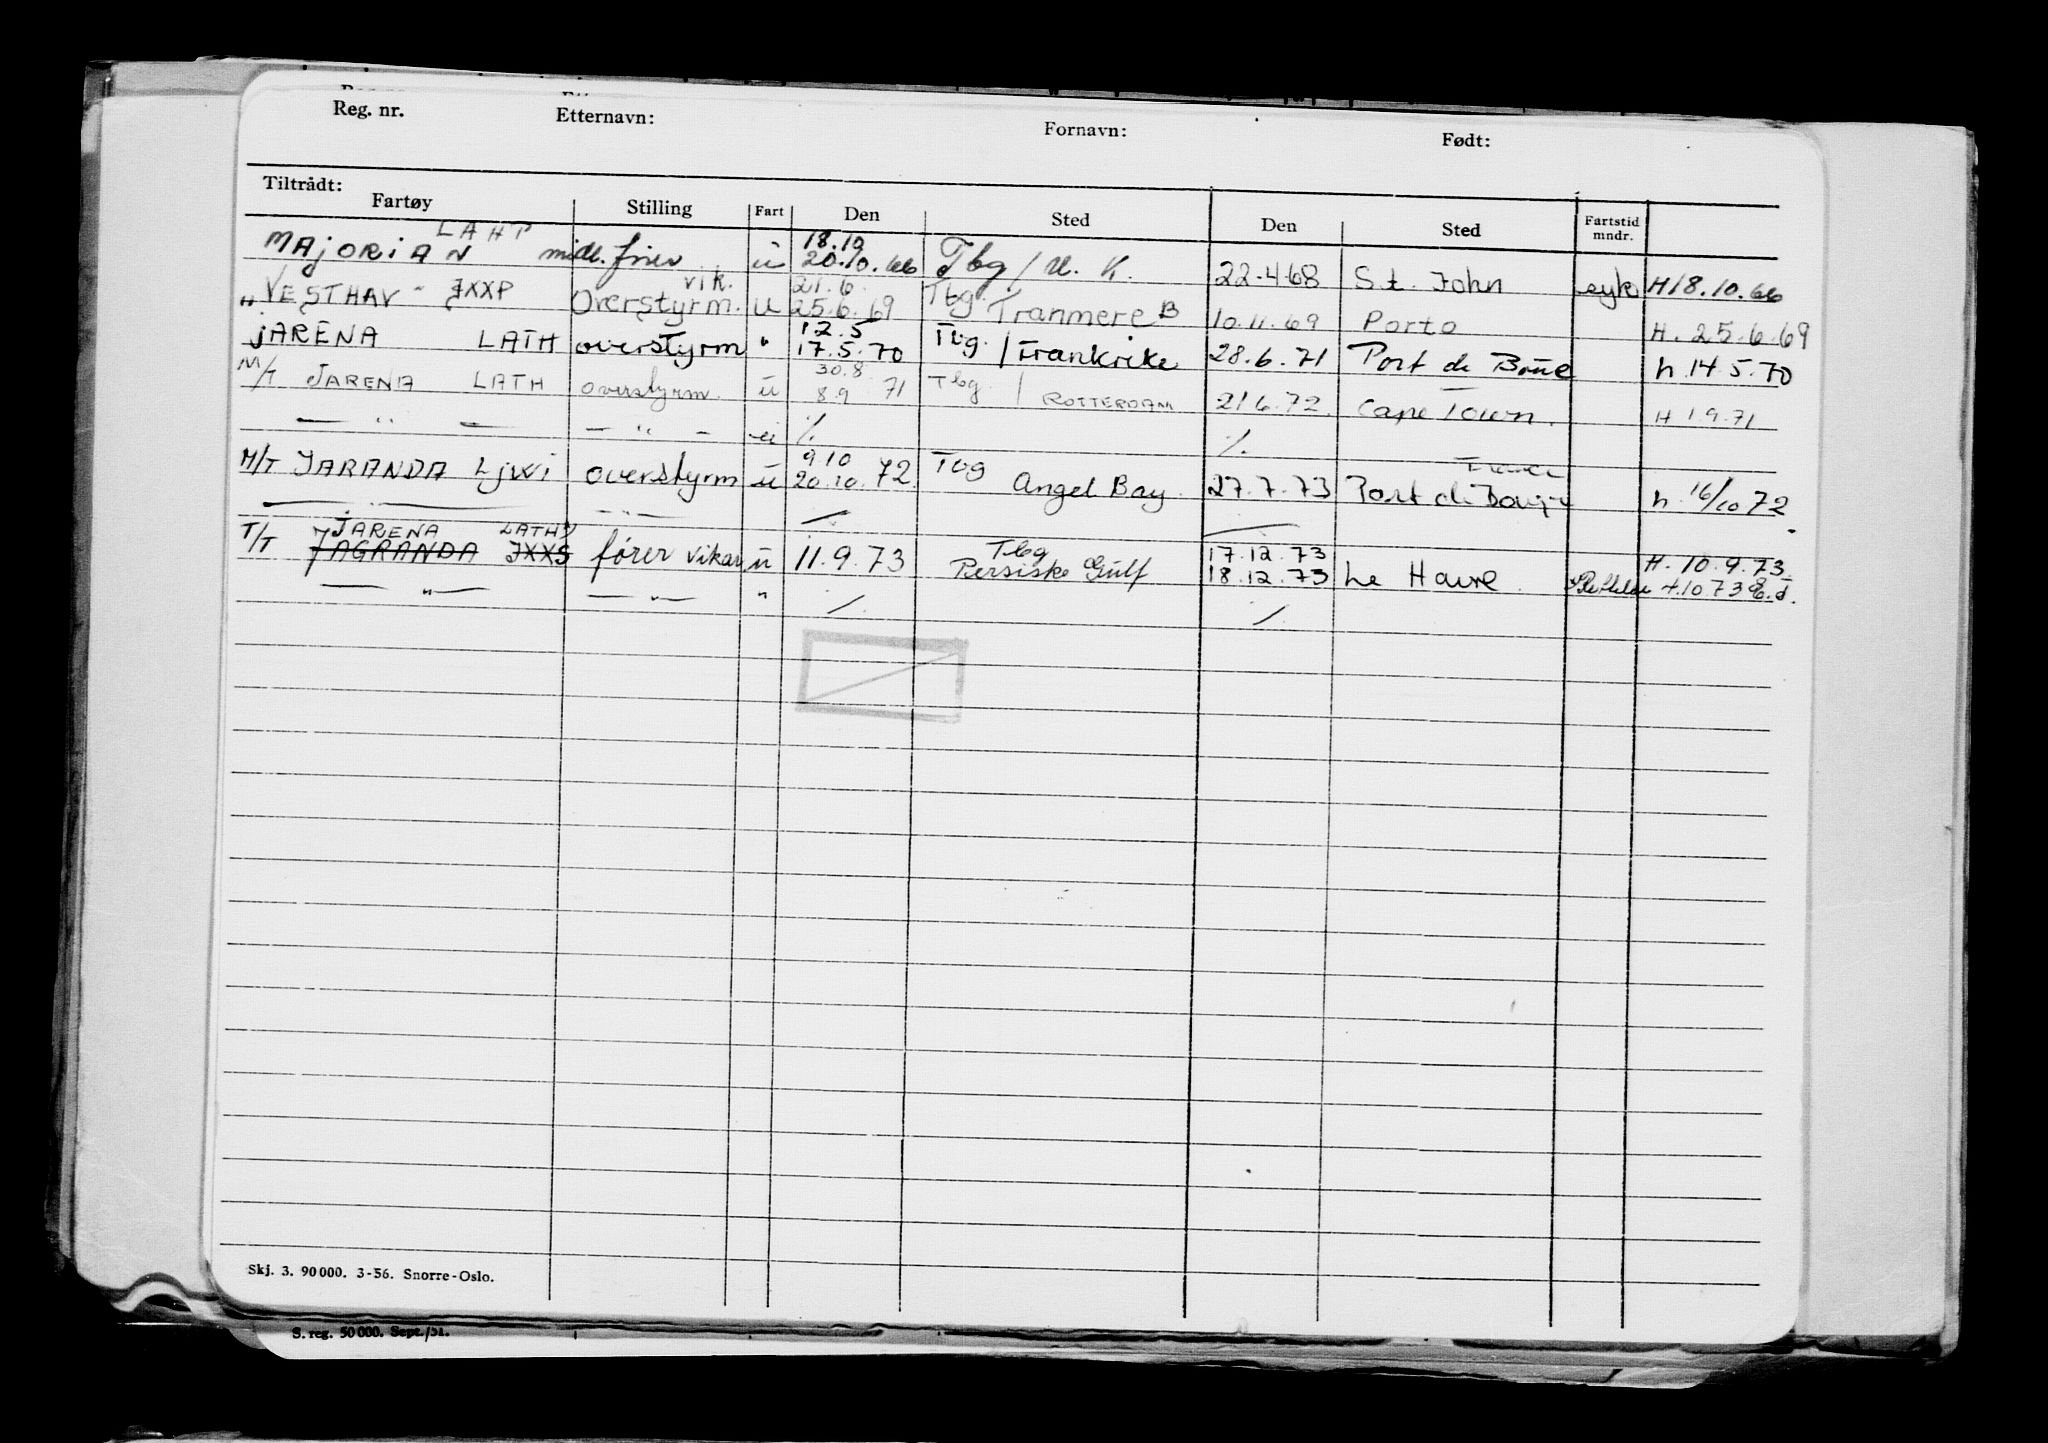 Reg. nr. Etternavn: Fornavn: Født:
Tiltrådt:
Fartøy Stilling Fart Den Sted Den Sted Fartstid mndr.
LAHP 18.10
MAJORIAN midl. fører u 20.10.66 Tbg / U. K. 22.4.68 St. John syk H 18.10.66
vik. 21.6. Tbg.
" VESTHAV " JXXP Overstyrm. u 25.6.69 Tranmere B 10.11.69 Porto H. 25.6.69
12.5
JARENA LATH overstyrm " 17.5.70 Tbg. / Frankrike 28.6.71 Port de Boue h. 14.5.70
30.8
M/T JARENA LATH overstyrm. u 8.9 71 Tbg / ROTTERDAM 21.6.72. Cape Town. H 1.9.71
— " — — " — u ./. ./.
9.10 France
M/T JARANDA LJWI overstyrm u 20.10.72. Tbg Angel Bay. 27.7.73 Port de h. 16/10 72.
— — " — ./. —
JARENA LATH Tbg 17.12.73 H. 10.9.73
T/T JAGRANDA JXXS fører vikar u 11.9.73 Persiske Gulf 18.12.73 Le Havre. 4.10 73
— " — — " — " ./. ./.
Skj. 3. 90 000. 3-56. Snorre-Oslo.
S. reg. 50 000. Sept./51.